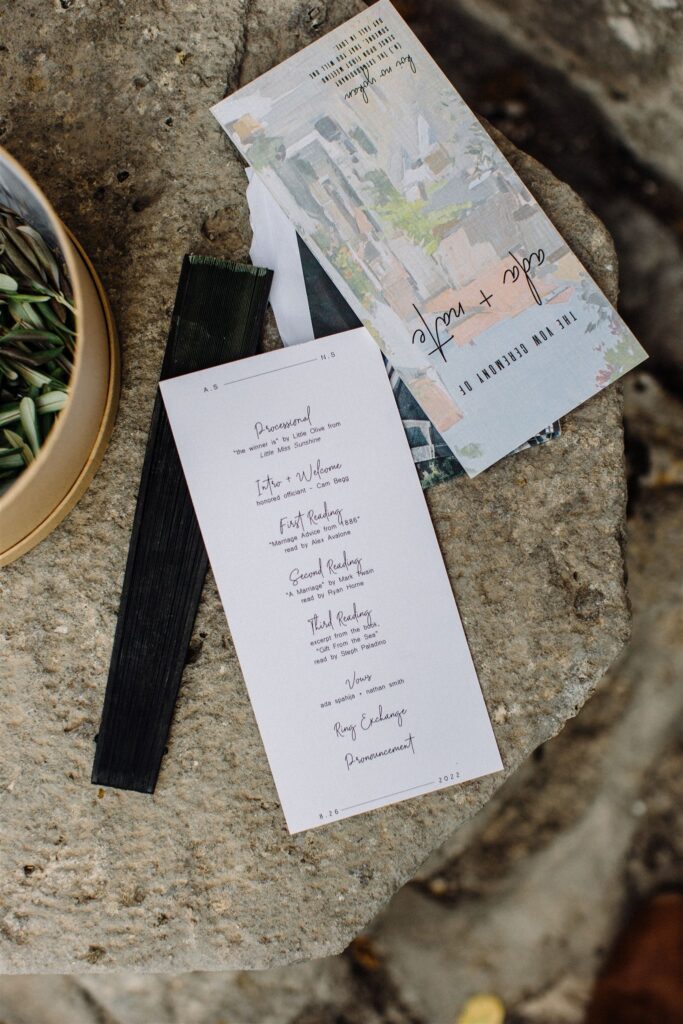 A.S N.S
Processional
"the winner is" by Little Olive from
Little Miss Sunshine
Intro + Welcome
honored officiant - Cam Begg
First Reading
"Marriage Advice from 1886"
read by Alex Avalone
Second Reading
"A Marriage" by Mark Twain
read by Ryan Horne
Third Reading
excerpt from the book,
"Gift From the Sea"
read by Steph Paladino
Vows
ada spahija + nathan smith
Ring Exchange
Pronouncement
8.26 2022
THE VOW CEREMONY OF
ada + nate
SOMEONE, THAT YOU WILL ONE
DAY FALL IN LOVE.